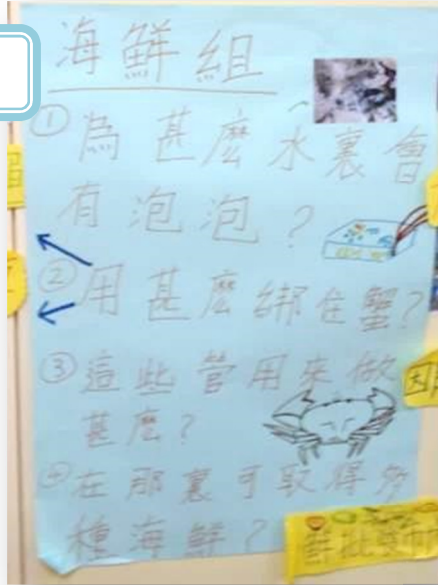 海鮮組
①為甚麼水裏會
有泡泡？
②用甚麼綁住蟹？
③這些管用來做
甚麼？
④在那裏可取得
種海鮮？
鮮批發市